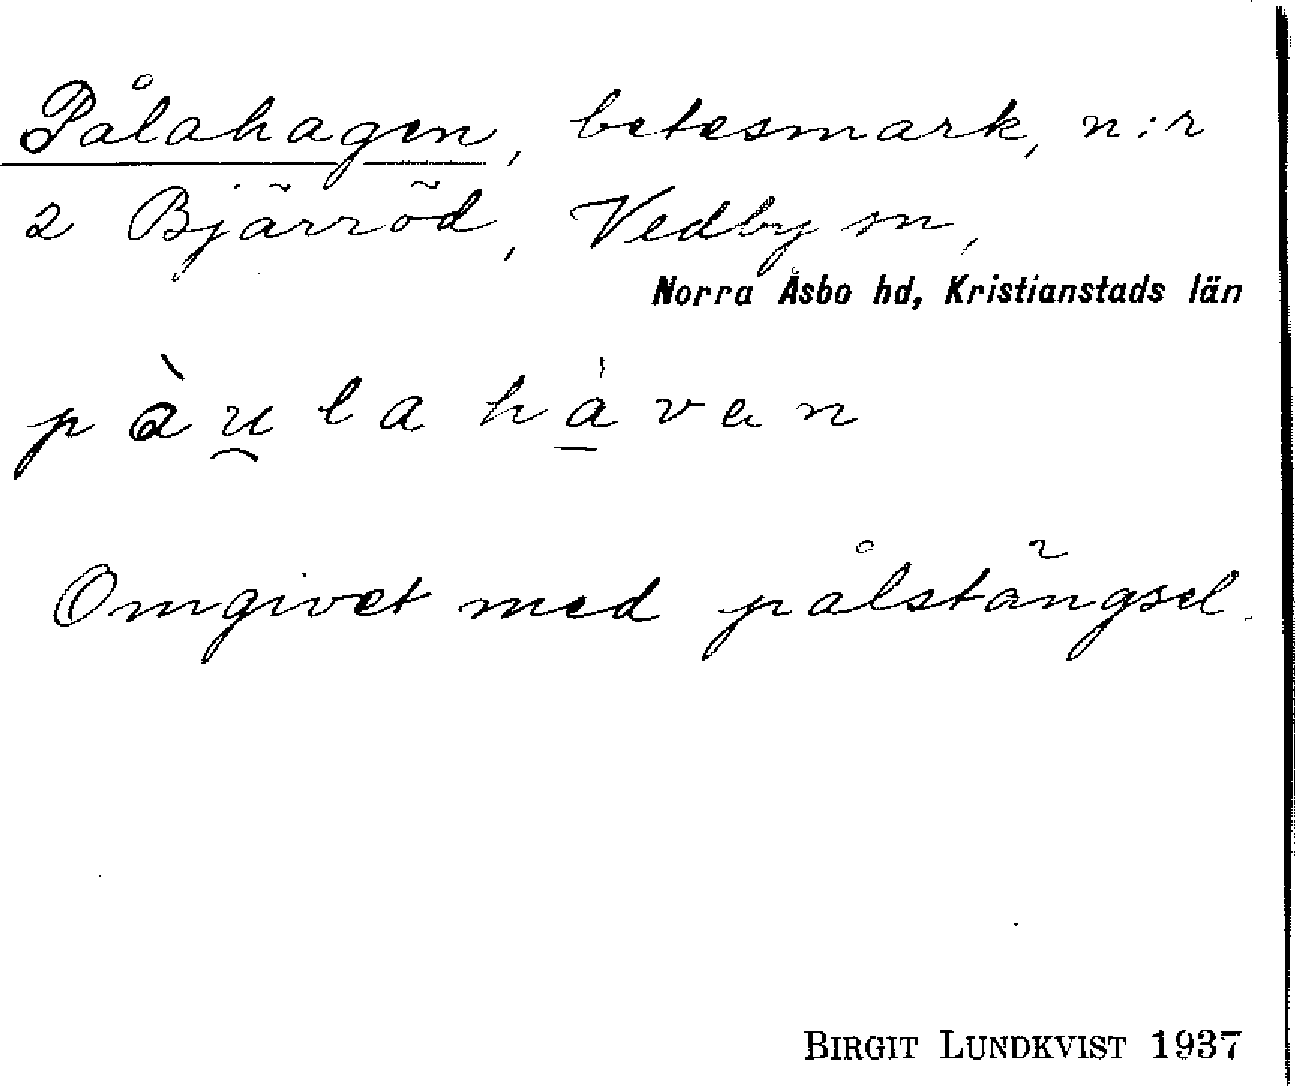 Pålahagen, betesmark, n:r
2 Bjärröd, Vedby sn,
Norra Åsbo hd, Kristianstads län
pàu̯lahàvan
Omgivet med pålstängsel.
BIRGIT LUNDKVIST 1937